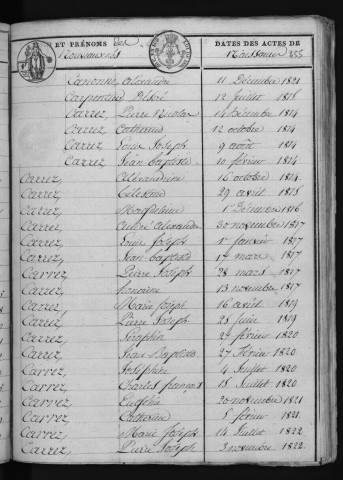 ET PRÉNOMS des
Nouveaux nés
DATES DES ACTES DE
Naissance 255
Canonne, Alexandre 11 Décembre 1821
Carpentier Désiré 12 Juillet 1818
Carrez, Pierre Nicolas 14 Décembre 1814
Carrez Catherine 12 octobre 1814
Carrez Louis Joseph 9 août 1814
Carrez Jean baptiste 10 février 1814
Carrez, Alexandrine 16 octobre 1814
Carrez, Célestine 29 avril 1815
Carrez, Magdeleine 1er Décembre 1816
Carrez, Alexandre 30 novembre 1817
Carrez, Louis Joseph 1er Janvier 1817
Carrez, Jean baptiste 17 mars 1817
Carrez Pierre Joseph 28 mars 1817
Carrez, honorine 13 novembre 1817
Carrez, Marie Joseph 16 avril 1819
Carrez, Pierre Joseph 25 Juin 1819
Carrez, Séraphin 27 février 1820
Carrez, Jean Baptiste 27 Février 1820
Carrez, Joséphine 4 Juillet 1820
Carrez, Charles françois 15 Juillet 1820
Carrez, Eugénie 20 novembre 1821
Carrez, Catherine 5 février 1821
Carrez, Marie Joseph 14 Juillet 1822
Carrez, Pierre Joseph 3 novembre 1822